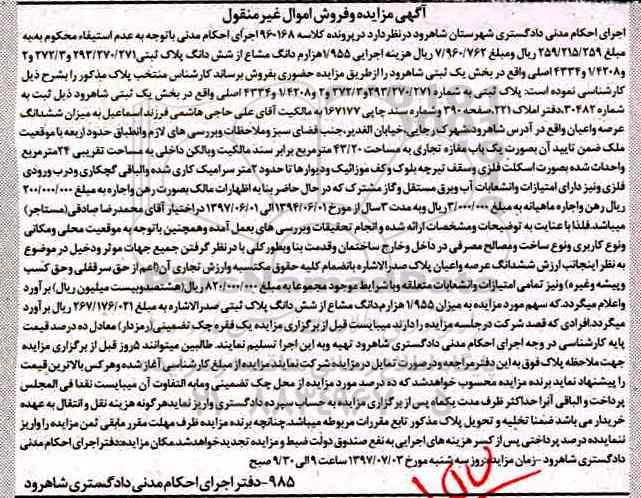 آگهی مزایده وفروش اموال غیر منقول
اجرای احکام مدنی دادگستری شهرستان شاهرود در نظر دارد در پرونده کلاسه 168-96 اجرای احکام مدنی با توجه به عدم استیفاء محکوم به به
مبلغ 259/215/259 ریال ومبلغ 7/960/762 ریال هزینه اجرایی 1/955 هزارم دانگ مشاع از شش دانگ پلاک ثبتی 293/270/271و 272/3 و2
و1/4208 و 4334 اصلی واقع در بخش یک ثبتی شاهرود را از طریق مزایده حضوری بفروش برساند کارشناس منتخب پلاک مذکور را بشرح ذیل
کارشناسی نموده است: پلاک ثبتی به شماره 293/270/271و272/3و2 و1/4208 و4334 اصلی واقع در بخش یک ثبتی شاهرود ذیل ثبت به
شماره 30482،دفتر املاک 221،صفحه 390 وشماره سند چاپی 167177 به مالکیت آقای علی حاجی هاشمی فرزند اسماعیل به میزان ششدانگ
عرصه واعیان واقع در آدرس شاهرود،شهرک رجایی،خیابان الغدیر،جنب فضای سبز وملاحظات وبررسی های لازم وانطباق حدود اربعه با موقعیت
ملک ضمن تایید آن بصورت یک باب مغازه تجاری به مساحت 43/20 مترمربع برابر سند مالکیت وبالکن داخلی به مساحت تقریبی 24مترمربع
واحداث شده بصورت اسکلت فلزی وسقف تیرچه بلوک وکف موزائیک ودیوارها تا حدود 2متر سرامیک کاری شده والباقی گچکاری ودرب ورودی
فلزی ونیز دارای امتیازات وانشعابات آب وبرق مستقل وگاز مشترک که در حال حاضر بنا به اظهارات مالک بصورت رهن واجاره به مبلغ 200/000/000
ریال رهن واجاره ماهیانه به مبلغ 3/000/000 ریال وبه مدت 3سال از مورخ 1394/06/01 الی 1397/06/01 در اختیار آقای محمدرضا صادقی(مستاجر)
میباشد.فلذا با عنایت به توضیحات ومشخصات ارائه شده و انجام تحقیقات وبررسی های بعمل آمده وهمچنین با توجه به موقعیت محلی ومکانی
ونوع کاربری ونوع ساخت ومصالح مصرفی در داخل وخارج ساختمان وقدمت بنا وبطور کلی با در نظر گرفتن جمیع جهات موثر ودخیل در موضوع
به نظر اینجانب ارزش ششدانگ عرصه واعیان پلاک صدرالاشاره بانضمام کلیه حقوق مکتسبه وارزش تجاری آن(اعم از حق سرقفلی وحق کسب
و پیشه وغیره) ونیز تمامی امتیازات وانشعابات متعلقه وبا شرایط موجود مجموعا به مبلغ 820/000/000 ریال(هشتصدوبیست میلیون ریال) برآورد
واعلام میگردد.که سهم مورد مزایده به میزان 1/955 هزارم دانگ مشاع از شش دانگ پلاک ثبتی صدرالاشاره به مبلغ 267/176/031 ریال برآورد
میگردد.افرادی که قصد شرکت در جلسه مزایده را دارند میبایست قبل از برگزاری مزایده یک فقره چک تضمینی(رمزدار) معادل ده درصد قیمت
پایه کارشناسی در وجه اجرای احکام مدنی دادگستری شاهرود تهیه وبه این اجرا تسلیم نمایند. طالبین میتوانند 5روز قبل از برگزاری مزایده
جهت ملاحظه پلاک فوق به این دفتر مراجعه ودرصورت تمایل در مزایده شرکت نمایند.مزایده از مبلغ کارشناسی آغاز شده وهر کس بالاترین قیمت
را پیشنهاد نماید برنده مزایده محسوب خواهد شد که ده درصد مورد مزایده از محل چک تضمینی ومابه التفاوت آن میبایست نقدا فی المجلس
پرداخت و الباقی آنرا حداکثر ظرف مدت یکماه پس از برگزاری مزایده به حساب سپرده دادگستری واریز نماید.هرگونه هزینه نقل و انتقال به عهده
خریدار می باشد.ضمنا تخلیه و تحویل پلاک مذکور تابع مقررات مربوطه میباشد.چنانچه برنده مزایده ظرف مهلت مقرر مابقی ثمن مزایده را واریز
ننماید ده درصد پرداختی پس از کسر هزینه های اجرایی به نفع صندوق دولت ضبط و مزایده تجدید خواهد شد.مکان مزایده:دفتر اجرای احکام مدنی
دادگستری شاهرود -زمان مزایده:روز سه شنبه مورخ 1397/07/03 ساعت 9 الی 9/30 صبح
985-دفتر اجرای احکام مدنی دادگستری شاهرود